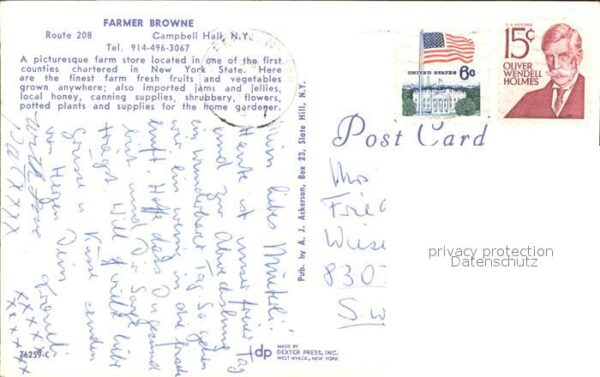 FARMER BROWNE
Route 208 Campbell Hall, N.Y.
Tel. 914-496-3067
A picturesque farm store located in one of the first
counties chartered in New York State. Here
are the finest farm fresh fruits and vegetables
grown anywhere; also imported jams and jellies,
local honey, canning supplies, shrubbery, flowers,
potted plants and supplies for the home gardener.
Mein liebes Mütterli!
Heute ist unser freier Tag
und zur Abwechslung
ein wunderbarer Tag. So gehen
wir ein wenig in die
Luft. Hoffe dass Du gesund
bist und Dir Sorge
trägst. Will viele liebe
Grüsse u. Küsse senden
von Herzen Dein
with love
xxxxx
76259-C
Pub. by A. J. Ackerson, Box 23, Slate Hill, N.Y.
dp
MADE BY
DEXTER PRESS, INC.
WEST NYACK, NEW YORK
UNITED STATES 6c
U.S. POSTAGE
15c
OLIVER
WENDELL
HOLMES
Post Card
Mrs.
Fried
Wiese
830
S.W
privacy protection
Datenschutz